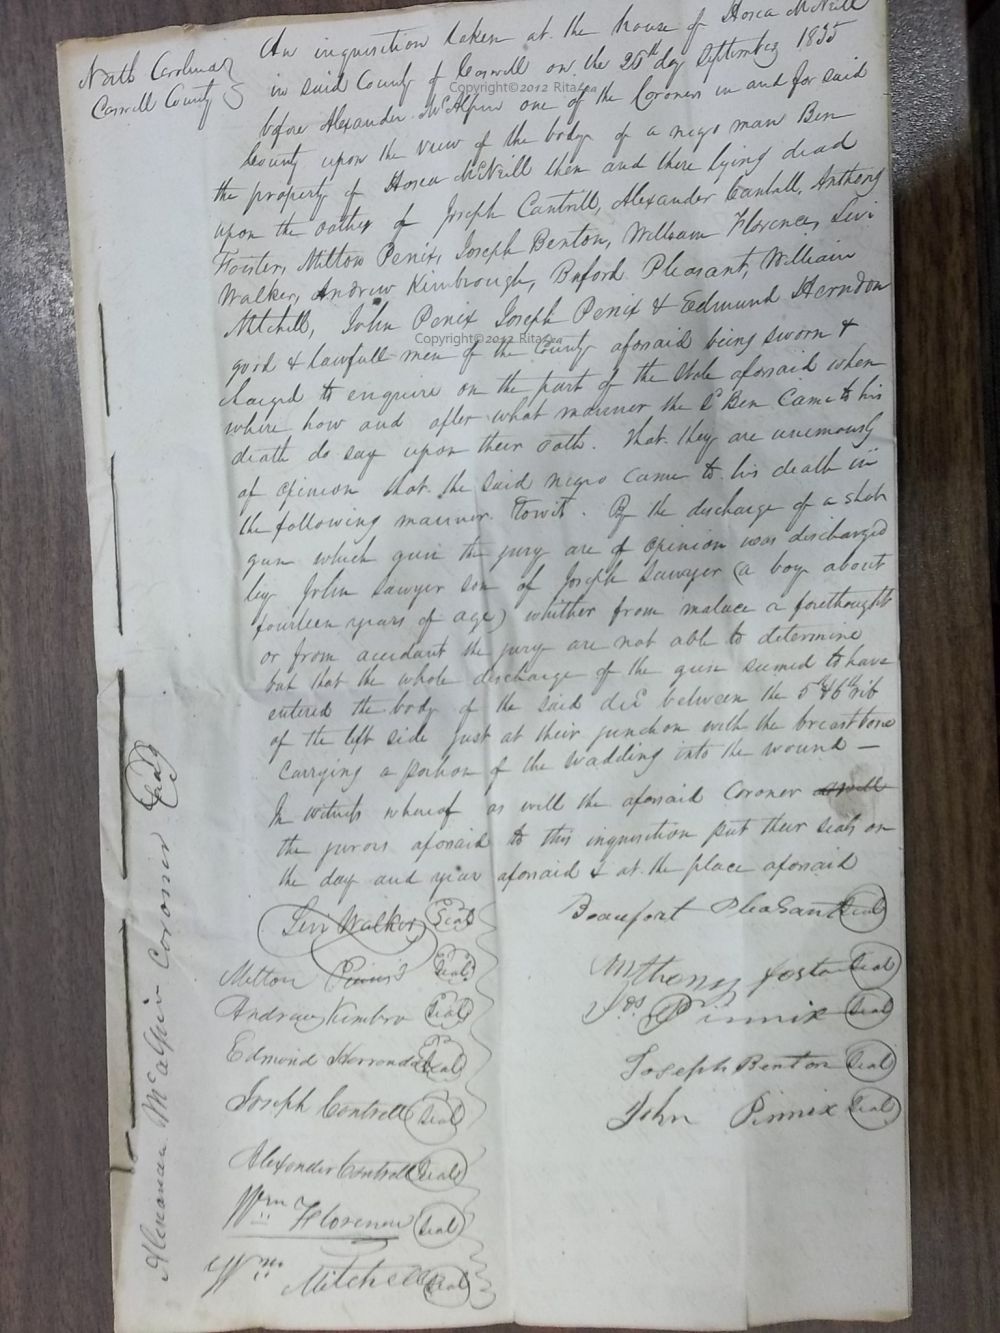 North Carolina
Caswell County
An inquisition taken at the house of Hosea McNeill
in said County of Caswell on the 25th day September 1835
Copyright©2012 RitaLea
before Alexander McAlpin one of the Coroners in and for said
County upon the view of the body of a negro man Ben
the property of Hosea McNeill then and there lying dead
upon the oathes of Joseph Cantrill, Alexander Cantall, Anthony
Foister, Milton Penix, Joseph Benton, William Florence, Levi
Walker, Andrew Kimbrough, Buford Pleasant, William
Mitchell, John Penix Joseph Penix & Eedmund Herndon
Copyright©2012 RitaLea
good & lawfull men of the County aforsaid being sworn &
charged to enquire on the part of the State aforsaid when
where how and after what manner the sd Ben Came to his
death do say upon their oath. That they are unemously
of opinion that the said negro came to his death in
the following manner. Towit. By the discharge of a shot
gun which gun the jury are of opinion was discharged
by John Sawyer son of Joseph Sawyer (a boy about
fourteen years of age) whither from maluce a forethought
or from accedant the jury are not able to determine
but that the whole discharge of the gun seemed to have
entered the body of the said decd between the 5th & 6th rib
of the left side just at their junchon with the breast bone
Carrying a portion of the wadding into the wound —
In witness whereof as will the aforsaid Coroner
the jurors aforsaid to this inquisition put their seals on
the day and year aforsaid & at the place aforsaid
Levi Walker Seal
Milton Pinnix Seal
Andrew Kimbro Seal
Edmond Herrondon Seal
Joseph Contrell Seal
Alexander Contrall Seal
Wm Florence Seal
Wm Mitchell Seal
Beaufort Pleasant Seal
Anthony Foster Seal
Jos Pinnix Seal
Joseph Benton Seal
John Pinnix Seal
Alexanan McAlpin Coroner Seal